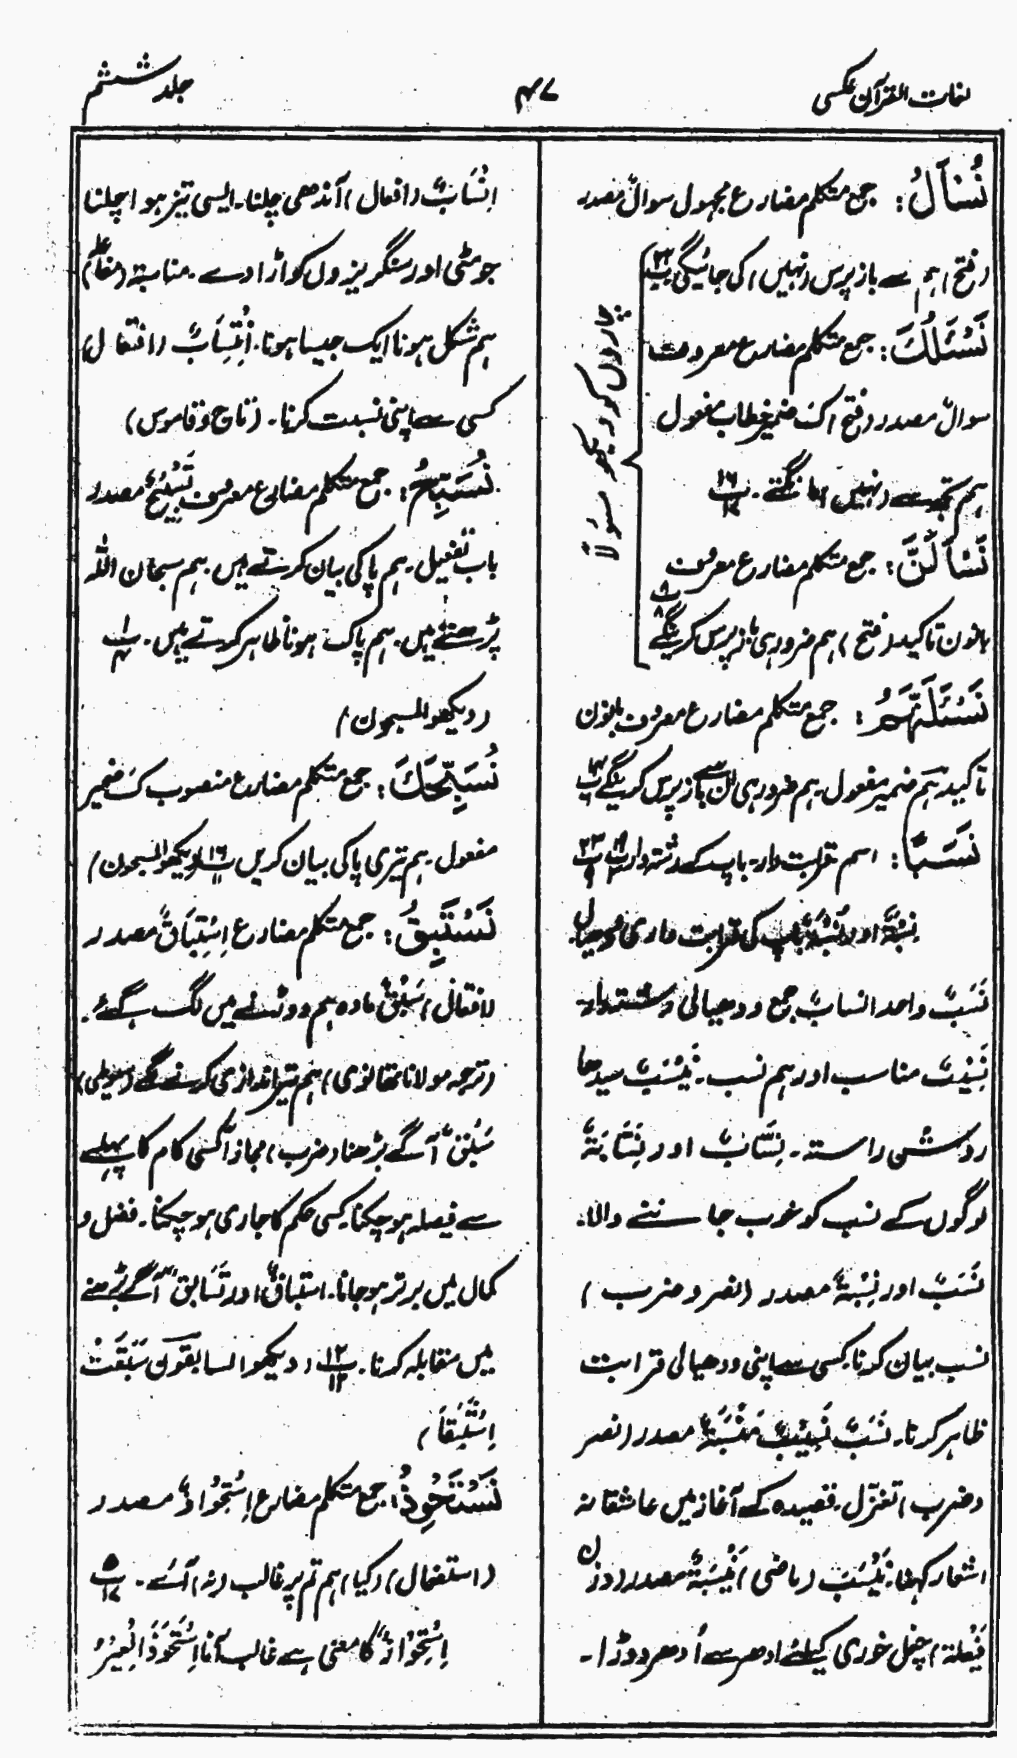 لغات القرآن عکسی
۴۷
جلد ششم
نُسْأَلُ: جمع متکلم مضارع مجہول سوالٌ مصدر
(فتح) ہم سے باز پرس (نہیں) کی جائیگی پ ۲۲
نَسْئَلُكَ: جمع متکلم مضارع معروف
سوالٌ مصدر (فتح) ک ضمیر خطاب مفعول
ہم تجھ سے (نہیں) مانگتے۔ پ ۱۶ ۱۷
نَسْأَلَنَّ: جمع متکلم مضارع معروف
بانون تاکید (فتح) ہم ضرور ہی باز پرس کرینگے پ ۸ ۸
چاروں کو دیکھو سُولًا
نَسْئَلَنَّهُمْ: جمع متکلم مضارع معروف بانون
تاکید ہم ضمیر مفعول۔ ہم ضرور ہی ان سے باز پرس کرینگے پ ۱۴ ۶
نَسَبًا: اسم قرابت دار۔ باپ کے رشتہ دار پ ۱۹ پ ۲۳ ۹
نِسْبَةٌ اور نُسْبَةٌ باپ کی قرابت
نَسَبٌ واحد انسابٌ جمع ددھیالی رشتہ دار۔
نَسِیْبٌ مناسب اور ہم نسب۔ نَیْسَبٌ سیدھا
روشن راستہ۔ نَسَّابٌ اور نَسَّابَةٌ
لوگوں کے نسب کو خوب جاننے والا۔
نَسَبٌ اور نِسْبَةٌ مصدر (نصر و ضرب)
نسب بیان کرنا۔ کسی سے اپنی ددھیالی قرابت
ظاہر کرنا۔ نَسَبٌ نَسِیْبٌ مَنْسَبَةٌ مصدر (نصر
و ضرب) تغزّل۔ قصیدہ کے آغاز میں عاشقانہ
اشعار کہنا۔ نَیْسَبَ (ماضی) نَیْسَبَةٌ مصدر (وزن
فَیْعَلة) چغل خوری کیلئے ادھر سے اُدھر دوڑا۔
اِنْسَابٌ (افعال) آندھی چلنا۔ ایسی تیز ہوا چلنا
جو مٹی اور سنگریزوں کو اڑا دے۔ مناسبة (مفاعلة)
ہم شکل ہونا ایک جیسا ہونا۔ اِنْتِسَابٌ (افتعال)
کسی سے اپنی نسبت کرنا۔ (تاج و قاموس)
نُسَبِّحُ: جمع متکلم مضارع معروف تَسْبِیْحٌ مصدر
باب تفعیل۔ ہم پاکی بیان کرتے ہیں۔ ہم سبحان اللہ
پڑھتے ہیں۔ ہم پاک ہونا ظاہر کرتے ہیں۔ پ ۱ ۴
(دیکھو المسبحون)
نُسَبِّحَكَ: جمع متکلم مضارع منصوب کَ ضمیر
مفعول۔ ہم تیری پاکی بیان کریں پ ۱۶ ۱۱ (دیکھو المسبحون)
نَسْتَبِقُ: جمع متکلم مضارع اِسْتِبَاقٌ مصدر
(افتعال) سَبْقٌ مادہ ہم دوڑنے میں لگ گئے۔
(ترجمہ مولانا تھانوی) ہم تیر اندازی کرنے لگے (سیوطی)
سَبْقٌ آگے بڑھنا (ضرب) مجازاً کسی کام کا پہلے
سے فیصلہ ہو چکنا۔ کسی حکم کا جاری ہو چکنا۔ فضل و
کمال میں برتر ہو جانا۔ استباقٌ اور تَسَابق آگے بڑھنے
میں مقابلہ کرنا۔ پ ۱۲ ۱۲ (دیکھو السابقون سَبَقَتْ
اِسْتَبَقَا)
نَسْتَحْوِذْ: جمع متکلم مضارع اِسْتِحْوَاذٌ مصدر
(استفعال) (کیا) ہم تم پر غالب (نہ) آئے۔ پ ۵ ۱۷
اِسْتِحْوَاذٌ کا معنی ہے غالب آنا اِسْتَحْوَذَ الْعِیْرُ